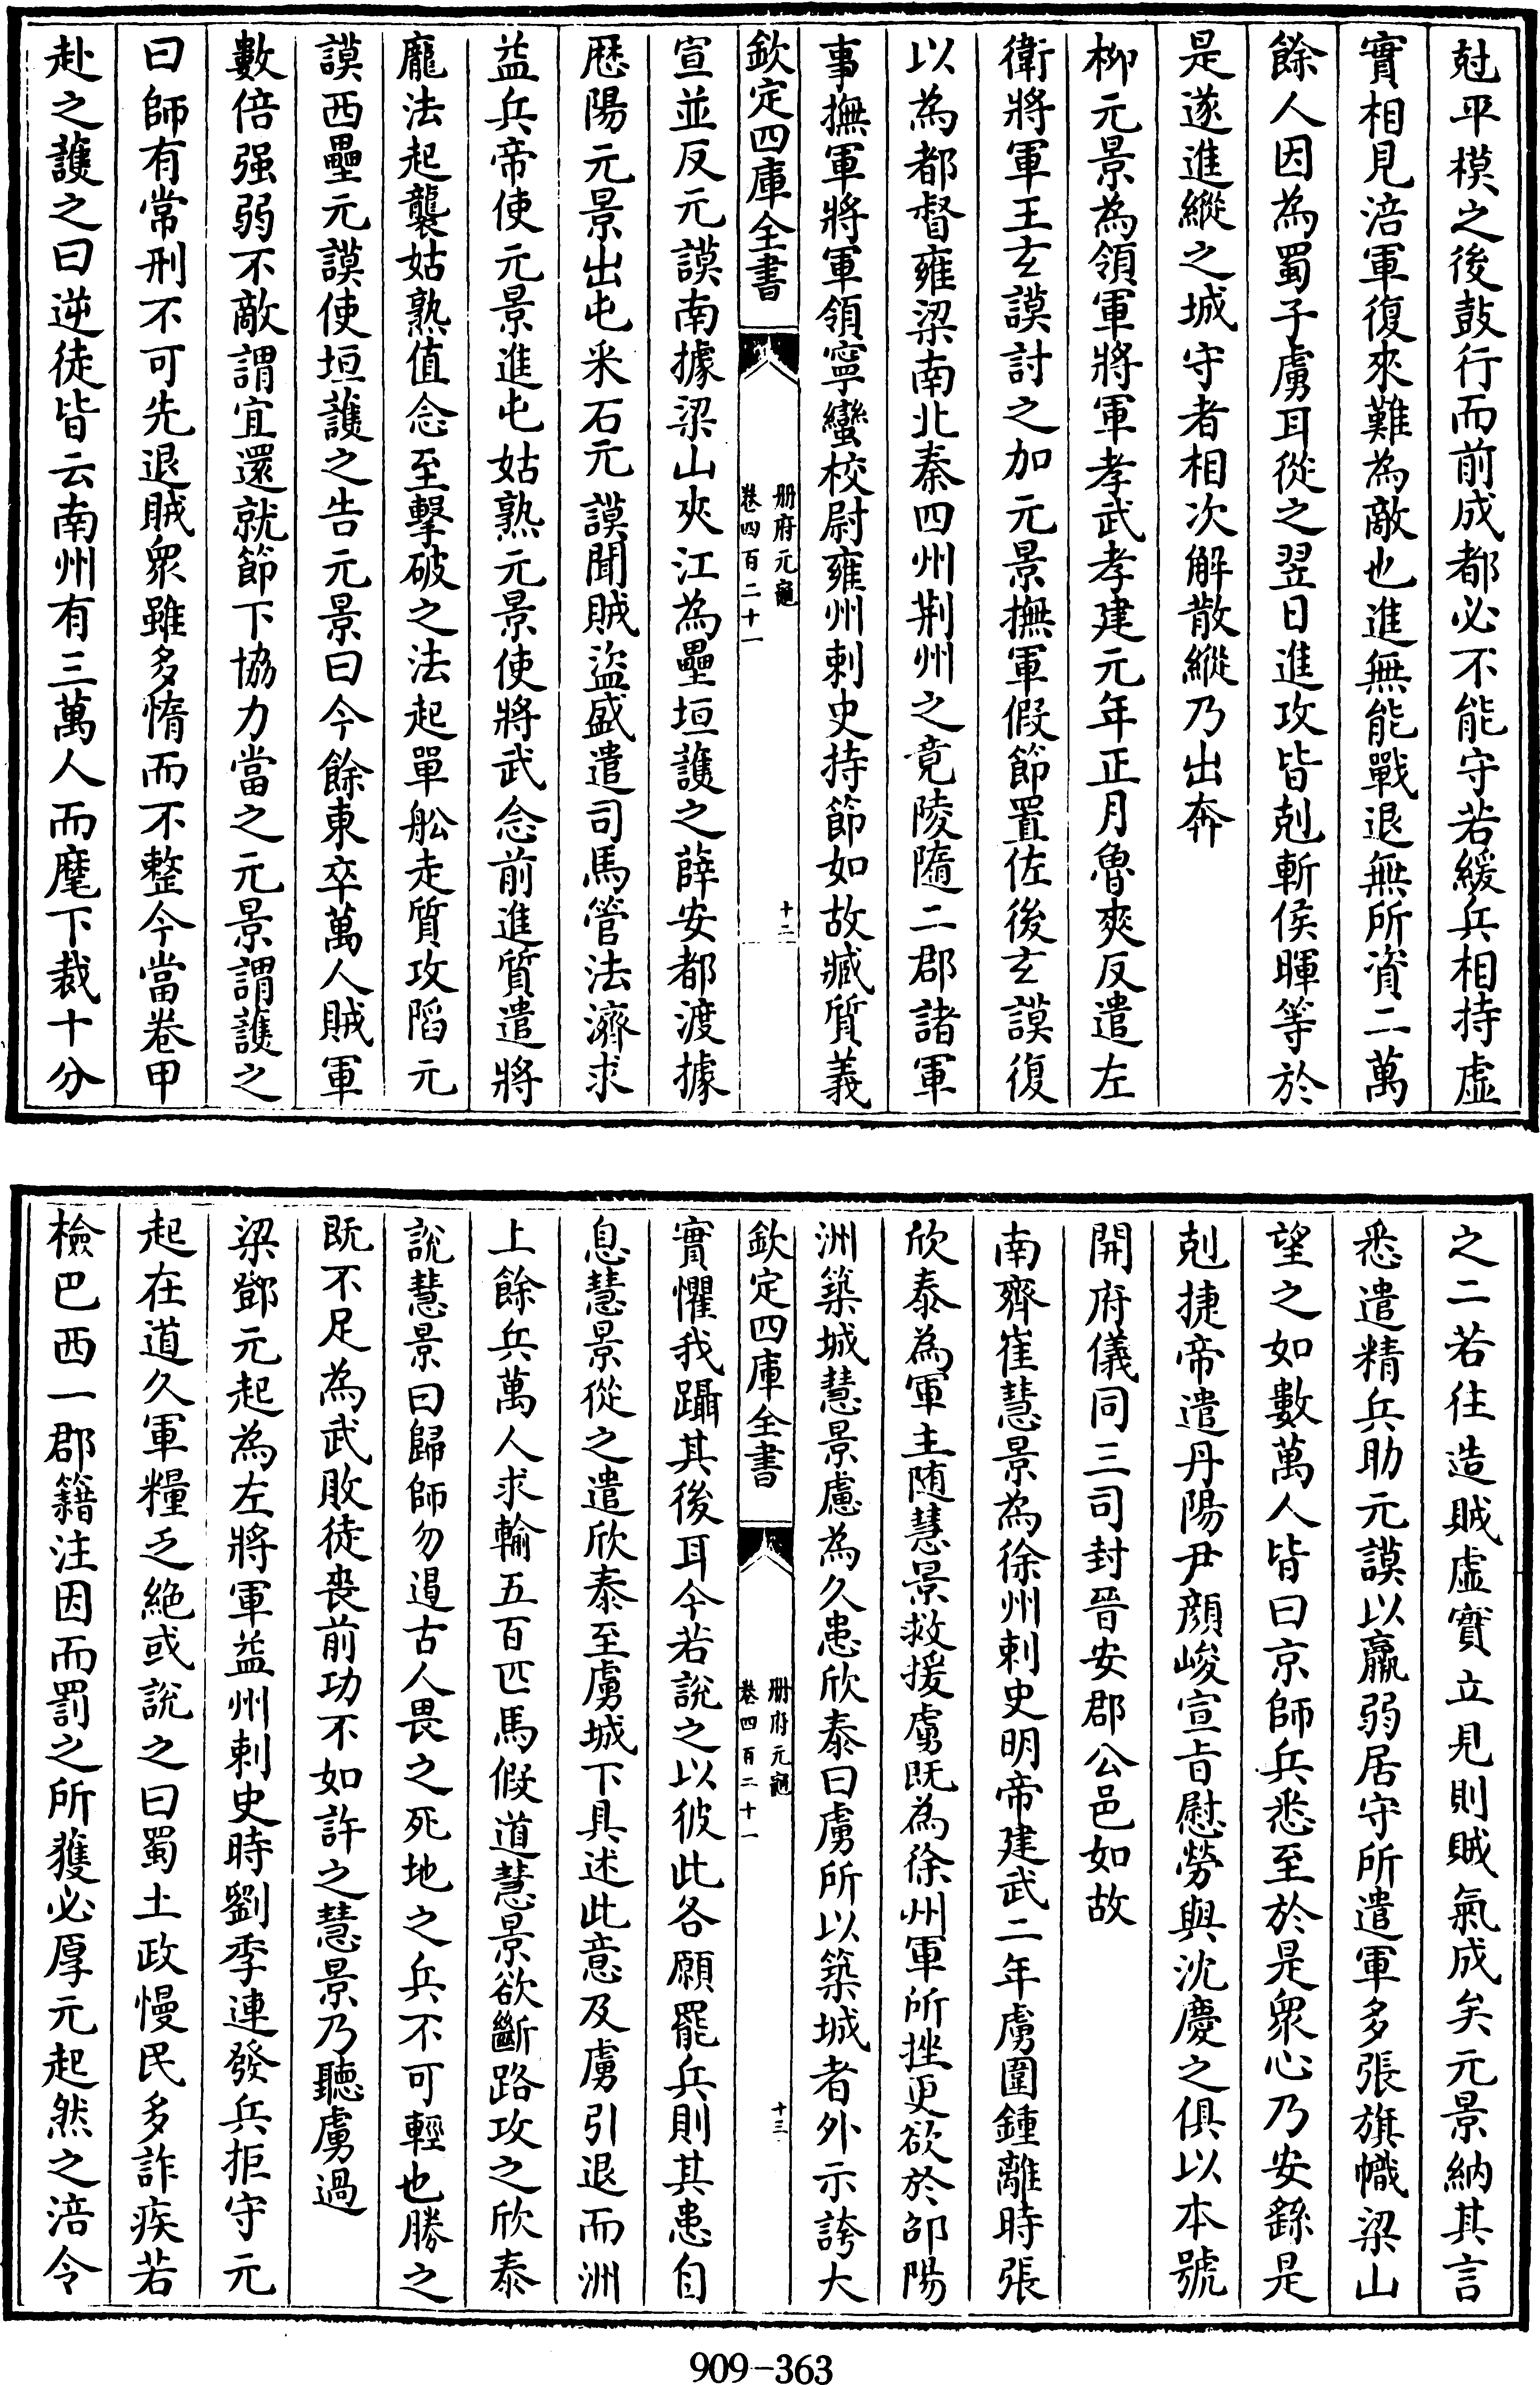 尅平模之後鼓行而前成都必不能守若緩兵相持虛
實相見涪軍復來難為敵也進無能戰退無所資二萬
餘人因為蜀子虜耳從之翌日進攻皆剋斬侯暉等於
是遂進縱之城守者相次解散縱乃出奔
柳元景為領軍將軍孝武孝建元年正月魯爽反遣左
衛將軍王玄謨討之加元景撫軍假節置佐後玄謨復
以為都督雍梁南北秦四州荆州之竟陵隨二郡諸軍
事撫軍將軍領寧蠻校尉雍州刺史持節如故臧質義
欽定四庫全書
册府元龜
卷四百二十一
十二
宣並反元謨南據梁山夾江為壘垣護之薛安都渡據
歷陽元景出屯采石元謨聞賊盜盛遣司馬管法濟求
益兵帝使元景進屯姑熟元景使將武念前進質遣將
龐法起襲姑熟值念至擊破之法起單舩走質攻䧟元
謨西壘元謨使垣護之告元景曰今餘東卒萬人賊軍
數倍强弱不敵謂宜還就節下協力當之元景謂護之
曰師有常刑不可先退賊衆雖多惰而不整今當卷甲
赴之護之曰逆徒皆云南州有三萬人而麾下裁十分
之二若往造賊虛實立見則賊氣成矣元景納其言
悉遣精兵助元謨以羸弱居守所遣軍多張旗幟梁山
望之如數萬人皆曰京師兵悉至於是衆心乃安繇是
剋捷帝遣丹陽尹顔峻宣旨慰勞與沈慶之俱以本號
開府儀同三司封晉安郡公邑如故
南齊崔慧景為徐州刺史明帝建武二年虜圍鍾離時張
欣泰為軍主随慧景救援虜既為徐州軍所挫更欲於邵陽
洲築城慧景慮為久患欣泰曰虜所以築城者外示誇大
欽定四庫全書
册府元龜
卷四百二十一
十三
實懼我躡其後耳今若說之以彼此各願罷兵則其患自
息慧景從之遣欣泰至虜城下具述此意及虜引退而洲
上餘兵萬人求輸五百匹馬假道慧景欲斷路攻之欣泰
說慧景曰歸師勿遏古人畏之死地之兵不可輕也勝之
既不足為武敗徒喪前功不如許之慧景乃聽虜過
梁鄧元起為左將軍益州刺史時劉季連發兵拒守元
起在道久軍糧乏絶或說之曰蜀土政慢民多詐疾若
檢巴西一郡籍注因而罰之所獲必厚元起然之涪令
909-363